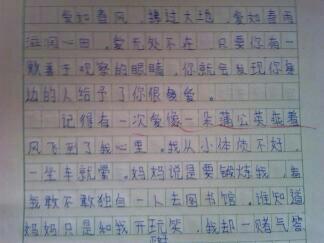 爱如春风，拂过大地，爱如春雨
滋润心田。爱无处不在，只要你有一
敞善于观察的眼睛，你就会发现你身
边的人给予了你很多爱。
记得有一次爱像一朵蒲公英拖着
风飞到了我心里。我从小体质不好，
一坐车就晕。妈妈说是要锻炼我，看
我敢不敢独自一人去图书馆。谁知道
妈妈只是和我开玩笑，我却一赌气答